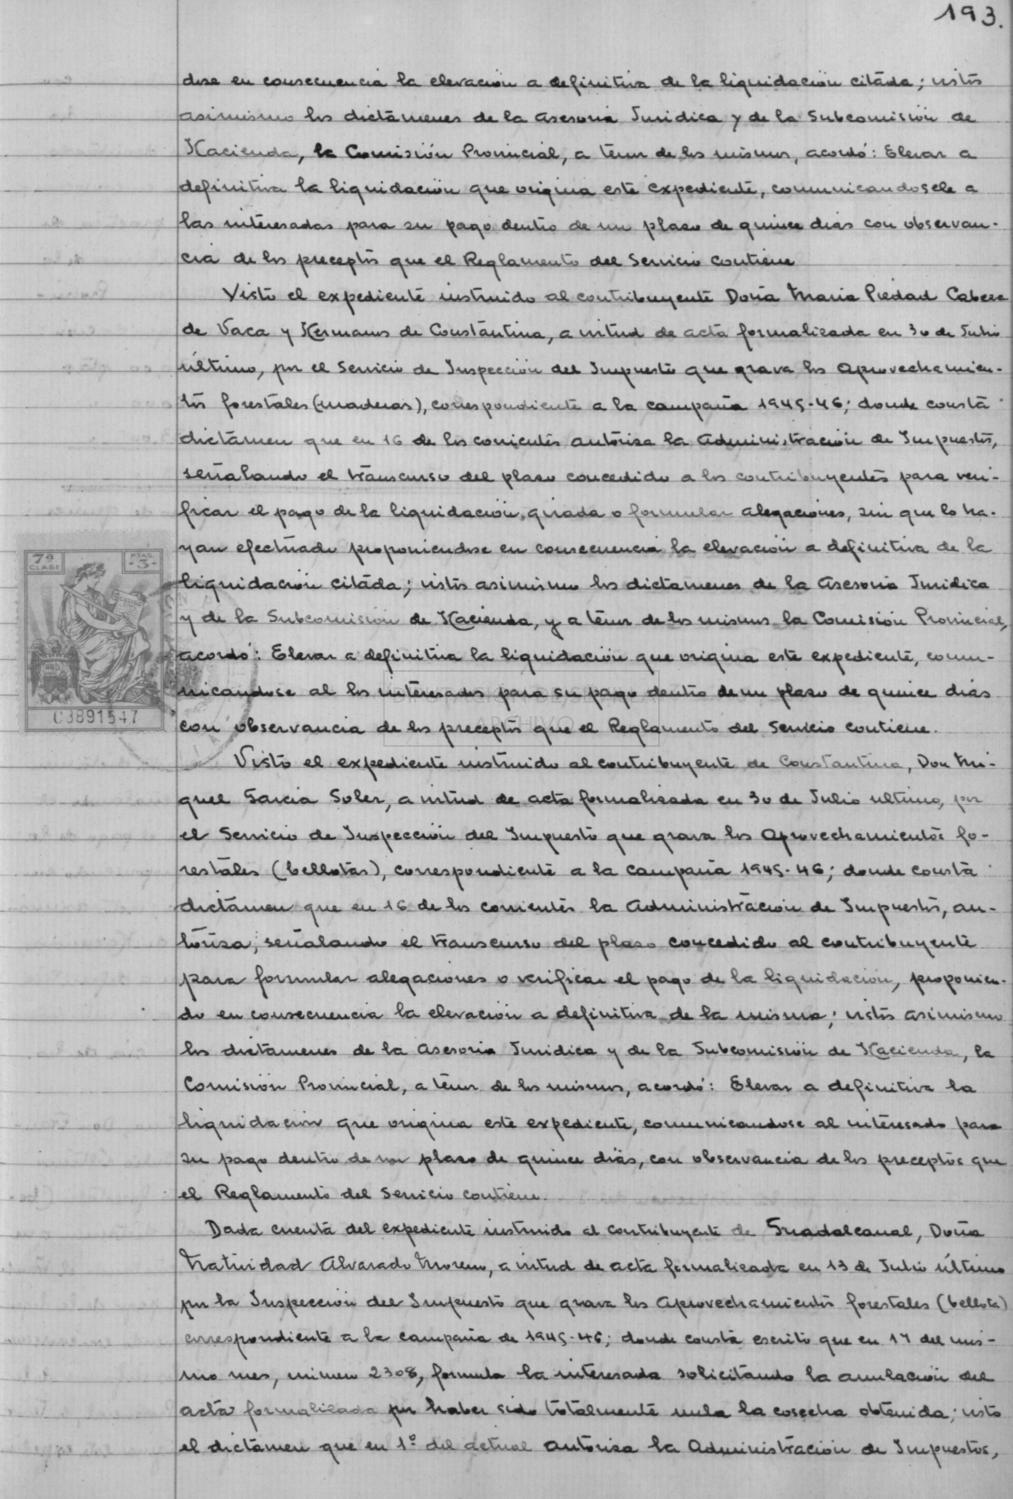 193.
dose en consecuencia la elevación a definitiva de la liquidación citada; vistos
asimismo los dictámenes de la Asesoria Juridica y de la Subcomisión de
Hacienda, la Comisión Provincial, a tenor de los mismos, acordó: Elevar a
definitiva la liquidación que origina este expediente, comunicandosele a
las interesadas para su pago dentro de un plazo de quince dias con observan-
cia de los preceptos que el Reglamento del Servicio contiene
Visto el expediente instruido al contribuyente Doña Maria Piedad Cabeza
de Vaca y Hermanos de Constantina, a virtud de acta formalizada en 30 de Julio
último, por el Servicio de Inspección del Impuesto que grava los Aprovechamien-
tos forestales (maderas), correspondiente a la campaña 1945-46; donde consta
dictamen que en 16 de los corrientes autoriza la Administración de Impuestos,
señalando el transcurso del plazo concedido a los contribuyentes para veri-
ficar el pago de la liquidación girada o formular alegaciones, sin que lo ha-
yan efectuado proponiendose en consecuencia la elevación a definitiva de la
liquidación citada; vistos asimismo los dictamenes de la Asesoria Juridica
y de la Subcomisión de Hacienda, y a tenor de los mismos la Comisión Provincial,
acordó: Elevar a definitiva la liquidación que origina este expediente, comu-
nicandose al los interesados para su pago dentro de un plazo de quince dias
con observancia de los preceptos que el Reglamento del Servicio contiene.
Visto el expediente instruido al contribuyente de Constantina, Don Mi-
guel Garcia Soler, a virtud de acta formalizada en 30 de Julio ultimo, por
el Servicio de Inspección del Impuesto que grava los Aprovechamientos fo-
restales (bellotas), correspondiente a la campaña 1945-46; donde consta
dictamen que en 16 de los corrientes la Administración de Impuestos, au-
toriza, señalando el transcurso del plazo concedido al contribuyente
para formular alegaciones o verificar el pago de la liquidación, proponien-
do en consecuencia la elevación a definitiva de la misma; vistos asimismo
los dictamenes de la Asesoria Juridica y de la Subcomisión de Hacienda, la
Comisión Provincial, a tenor de los mismos, acordó: Elevar a definitiva la
liquidación que origina este expediente, comunicandose al interesado para
su pago dentro de un plazo de quince dias, con observancia de los preceptos que
el Reglamento del Servicio contiene.
Dada cuenta del expediente instruido al contribuyente de Guadalcanal, Doña
Natividad Alvarado Moreno, a virtud de acta formalizada en 13 de Julio último
por la Inspección del Impuesto que grava los Aprovechamientos forestales (bellota)
correspondiente a la campaña de 1945-46; donde consta escrito que en 17 del mis-
mo mes, número 2308, formula la interesada solicitando la anulación del
acta formalizada por haber sido totalmente nula la cosecha obtenida; visto
el dictamen que en 1º del actual autoriza la Administración de Impuestos,
7ª CLASE
PTAS. 3
C3891547
ARCHIVO